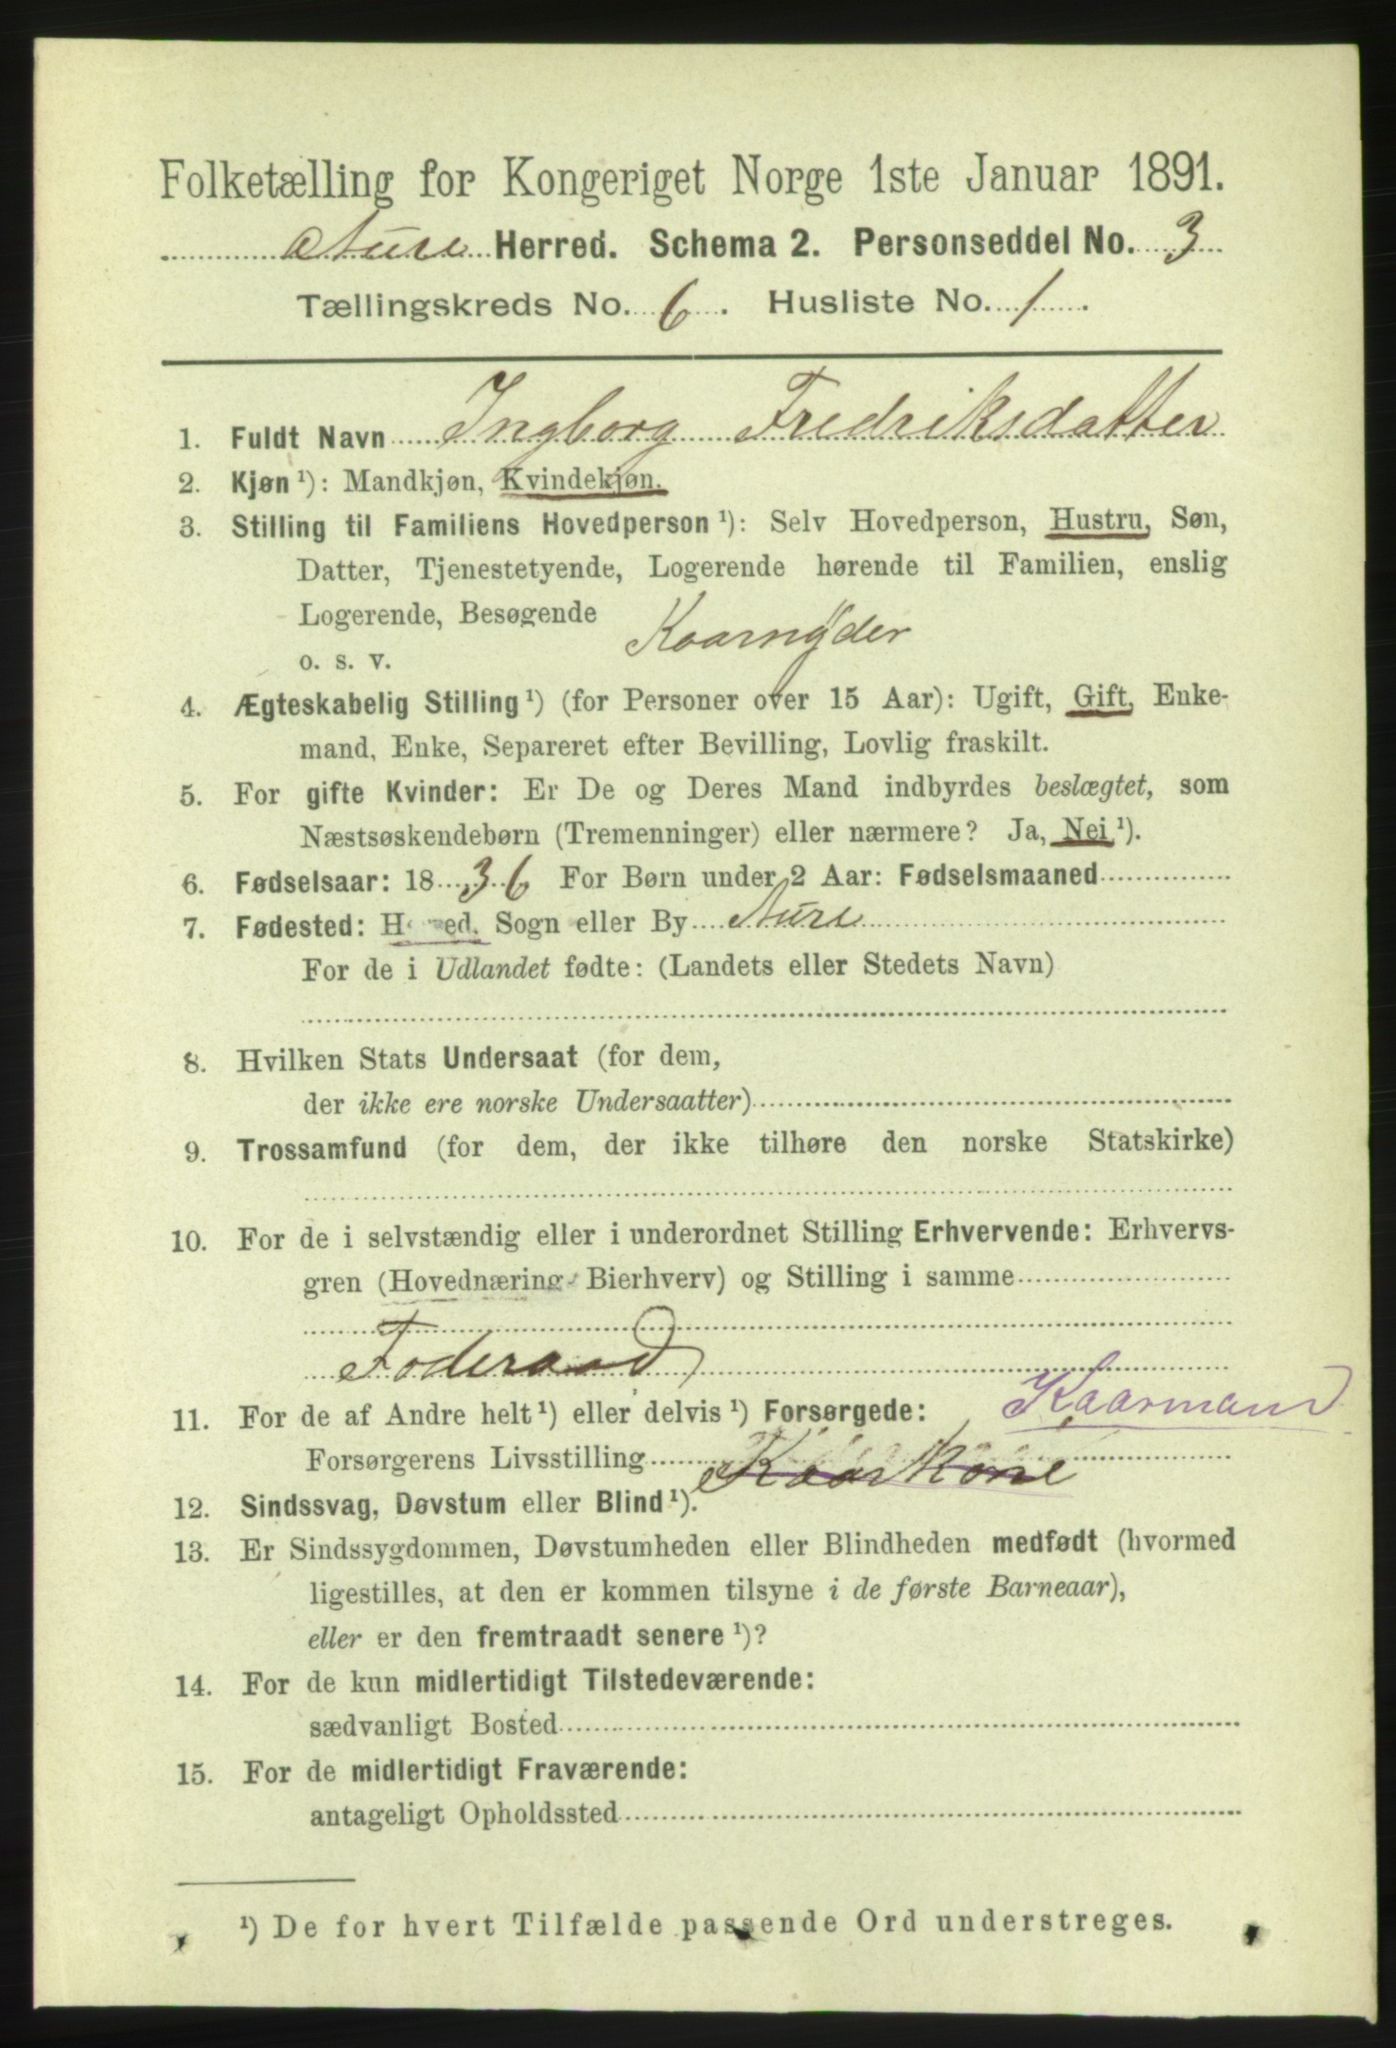 Folketælling for Kongeriget Norge 1ste Januar 1891.
Aure Herred. Schema 2. Personseddel No. 3
Tællingskreds No. 6. Husliste No. 1.
1. Fuldt Navn Ingborg Fredriksdatter
2. Kjøn ¹): Mandkjøn, Kvindekjøn.
3. Stilling til Familiens Hovedperson ¹): Selv Hovedperson, Hustru, Søn,
Datter, Tjenestetyende, Logerende hørende til Familien, enslig
Logerende, Besøgende
o. s. v. Kaarnyder
4. Ægteskabelig Stilling ¹) (for Personer over 15 Aar): Ugift, Gift, Enke-
mand, Enke, Separeret efter Bevilling, Lovlig fraskilt.
5. For gifte Kvinder: Er De og Deres Mand indbyrdes beslægtet, som
Næstsøskendebørn (Tremenninger) eller nærmere? Ja, Nei ¹).
6. Fødselsaar: 1836 For Børn under 2 Aar: Fødselsmaaned
7. Fødested: Herred, Sogn eller By Aure
For de i Udlandet fødte: (Landets eller Stedets Navn)
8. Hvilken Stats Undersaat (for dem,
der ikke ere norske Undersaatter)
9. Trossamfund (for dem, der ikke tilhøre den norske Statskirke)
10. For de i selvstændig eller i underordnet Stilling Erhvervende: Erhvervs-
gren (Hovednæring Bierhverv) og Stilling i samme
Foderaad
11. For de af Andre helt ¹) eller delvis ¹) Forsørgede: Kaarmand
Forsørgerens Livsstilling Kaarkone
12. Sindssvag, Døvstum eller Blind ¹).
13. Er Sindssygdommen, Døvstumheden eller Blindheden medfødt (hvormed
ligestilles, at den er kommen tilsyne i de første Barneaar),
eller er den fremtraadt senere ¹)?
14. For de kun midlertidigt Tilstedeværende:
sædvanligt Bosted
15. For de midlertidigt Fraværende:
antageligt Opholdssted
¹) De for hvert Tilfælde passende Ord understreges.